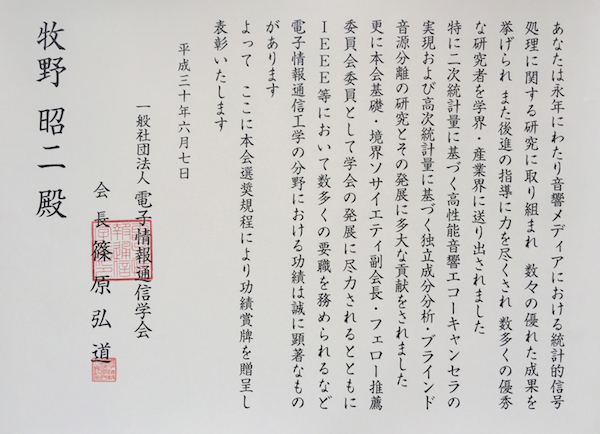 あなたは永年にわたり音響メディアにおける統計的信号
処理に関する研究に取り組まれ 数々の優れた成果を
挙げられ また後進の指導に力を尽くされ 数多くの優秀
な研究者を学界・産業界に送り出されました
特に二次統計量に基づく高性能音響エコーキャンセラの
実現および高次統計量に基づく独立成分分析・ブラインド
音源分離の研究とその発展に多大な貢献をされました
更に本会基礎・境界ソサイエティ副会長・フェロー推薦
委員会委員として学会の発展に尽力されるとともに
IEEE等において数多くの要職を務められるなど
電子情報通信工学の分野における功績は誠に顕著なもの
があります
よって ここに本会選奨規程により功績賞牌を贈呈し
表彰いたします
平成三十年六月七日
一般社団法人 電子情報通信学会
会長 篠原弘道
牧野 昭二 殿